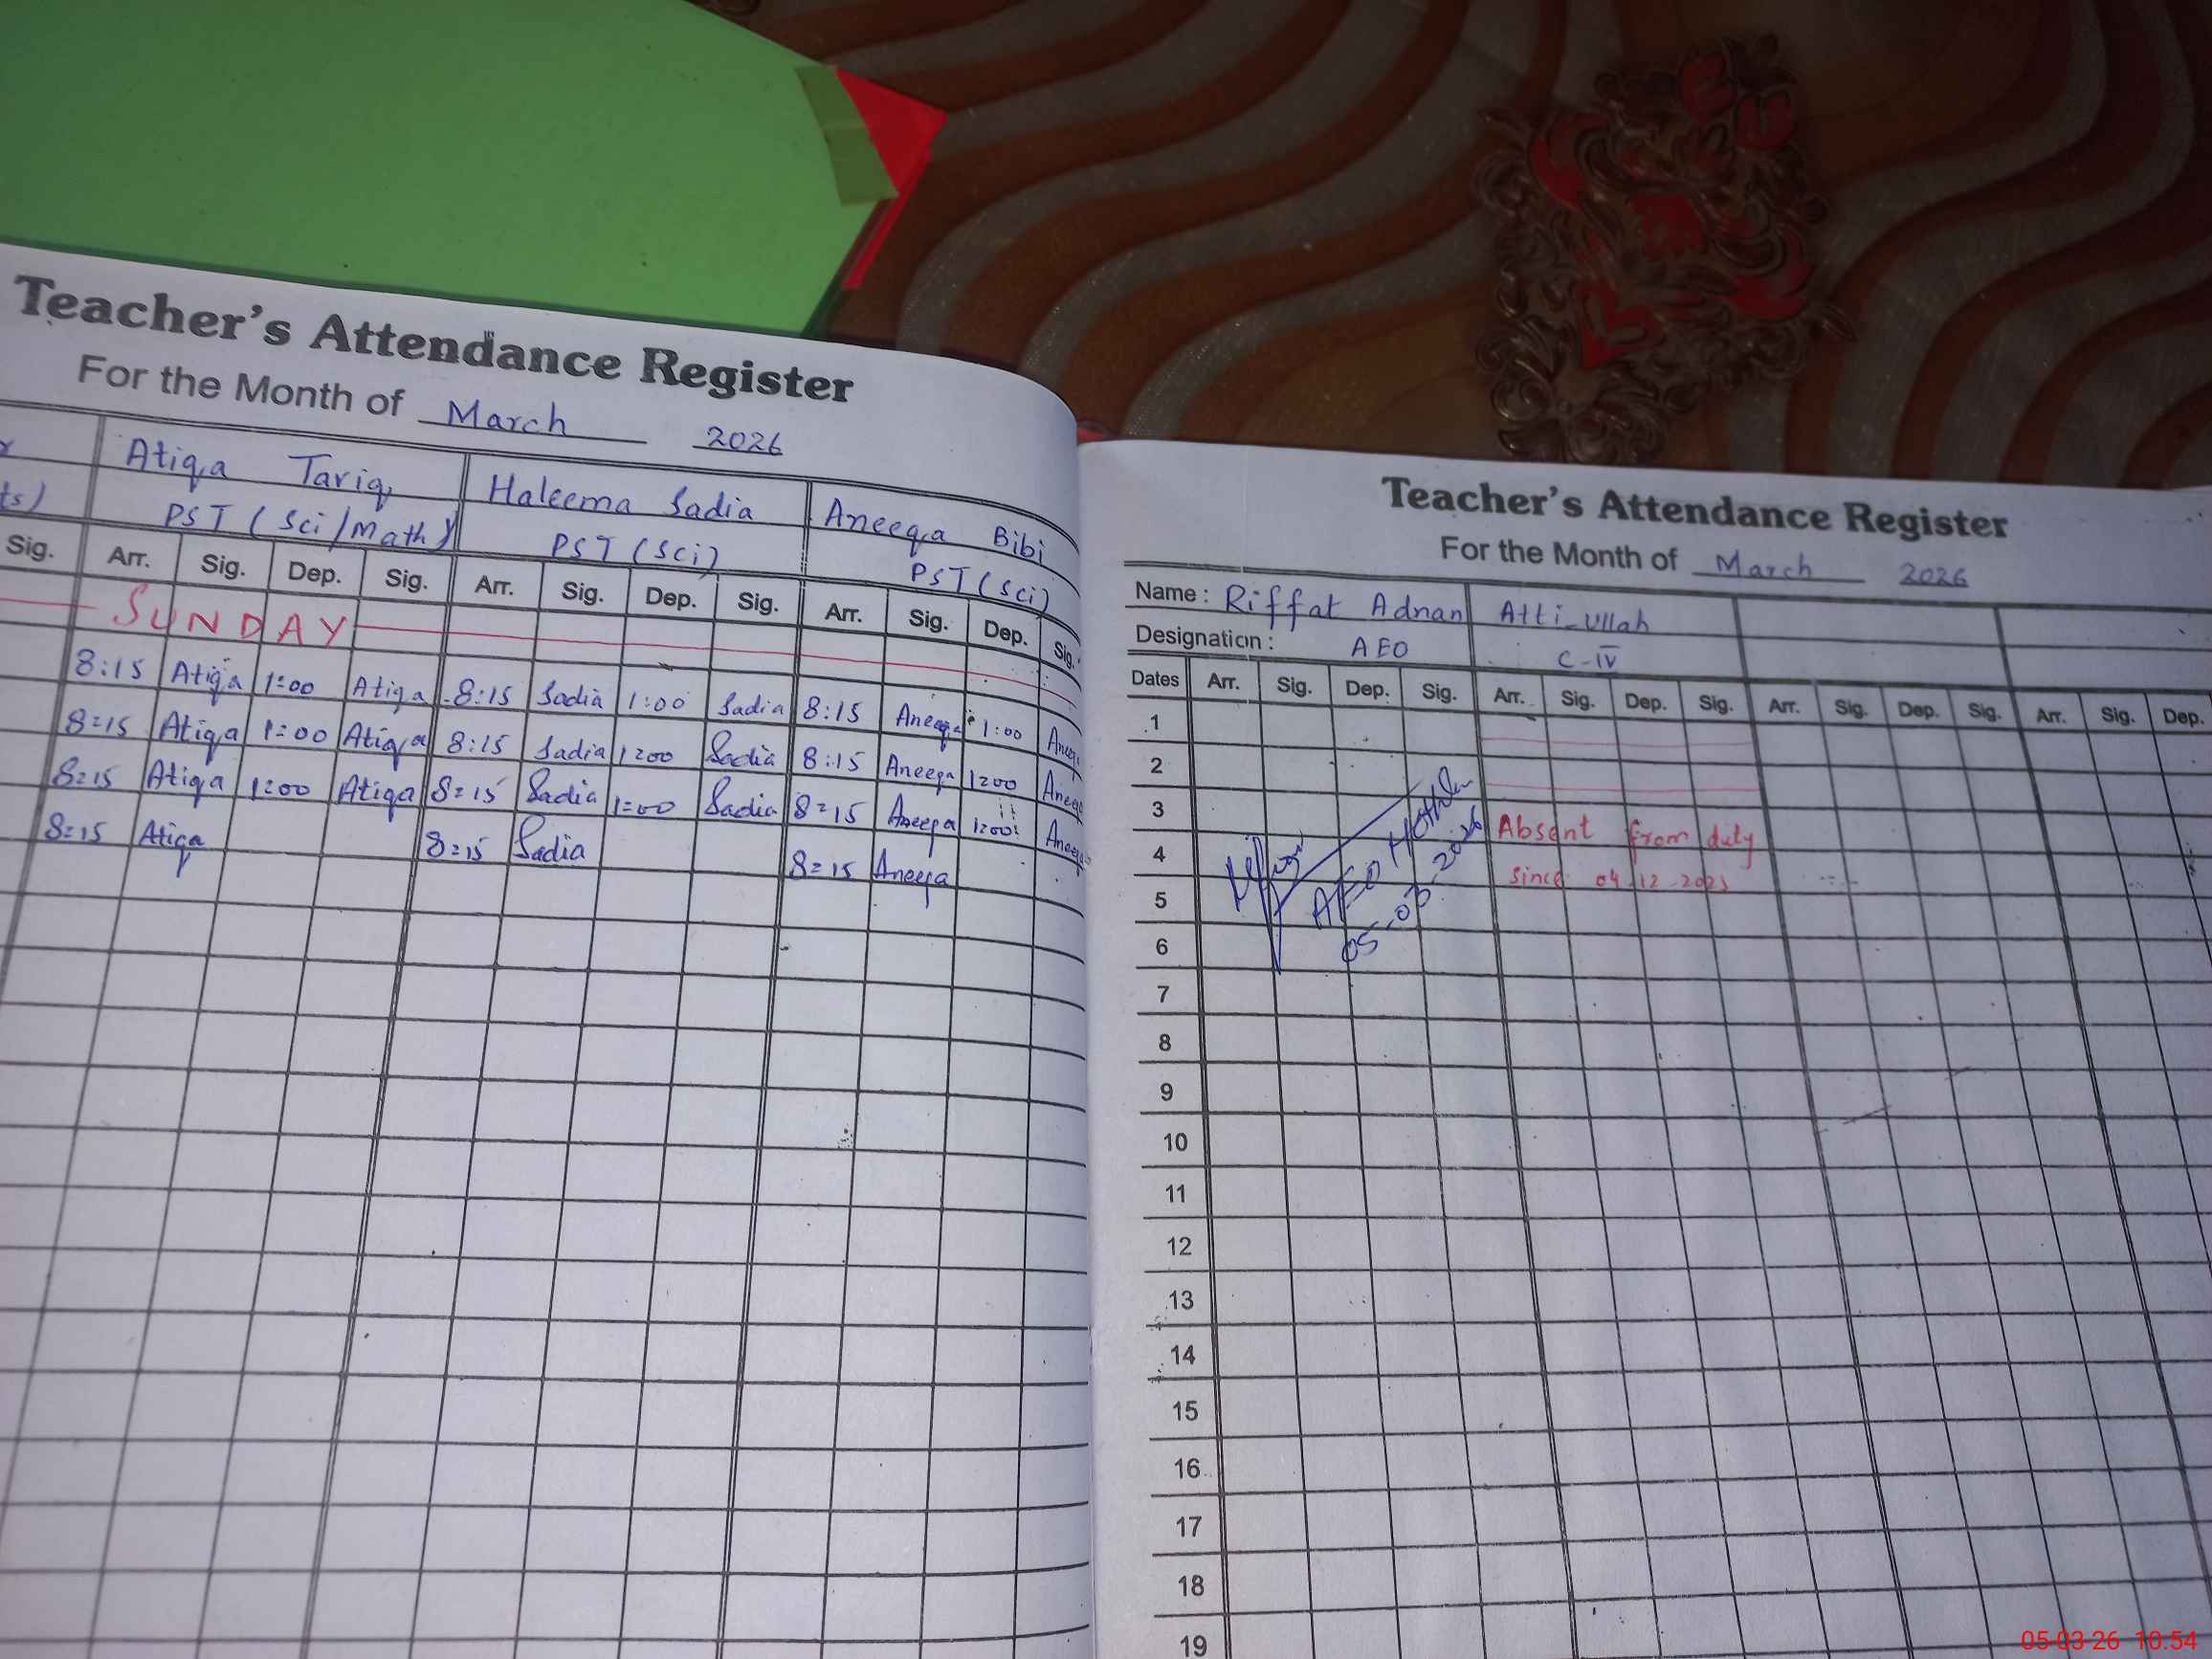 Teacher's Attendance Register
For the Month of March 2026
Atiqa Tariq Haleema Sadia Aneeqa Bibi
ts) PST (Sci/Math) PST (Sci) PST (Sci)
Sig. Arr. Sig. Dep. Sig. Arr. Sig. Dep. Sig. Arr. Sig. Dep. Sig.
SUNDAY
8:15 Atiqa 1:00 Atiqa 8:15 Sadia 1:00 Sadia 8:15 Aneeqa 1:00 Aneeq
8=15 Atiqa 1:00 Atiqa 8:15 Sadia 1200 Sadia 8:15 Aneeqa 1200 Aneeq
8=15 Atiqa 1:00 Atiqa 8=15 Sadia 1=00 Sadia 8=15 Aneeqa 1200 Aneeq
8=15 Atiqa 8=15 Sadia 8=15 Aneeqa
Teacher's Attendance Register
For the Month of March 2026
Name : Riffat Adnan Atti-ullah
Designation : AEO C-IV
Dates Arr. Sig. Dep. Sig. Arr. Sig. Dep. Sig. Arr. Sig. Dep. Sig. Arr. Sig. Dep.
1
2
3
Absent from duty
4
since 04-12-2025
5
AEO
05-03-2026
6
7
8
9
10
11
12
13
14
15
16
17
18
19
05-03-26 10:54